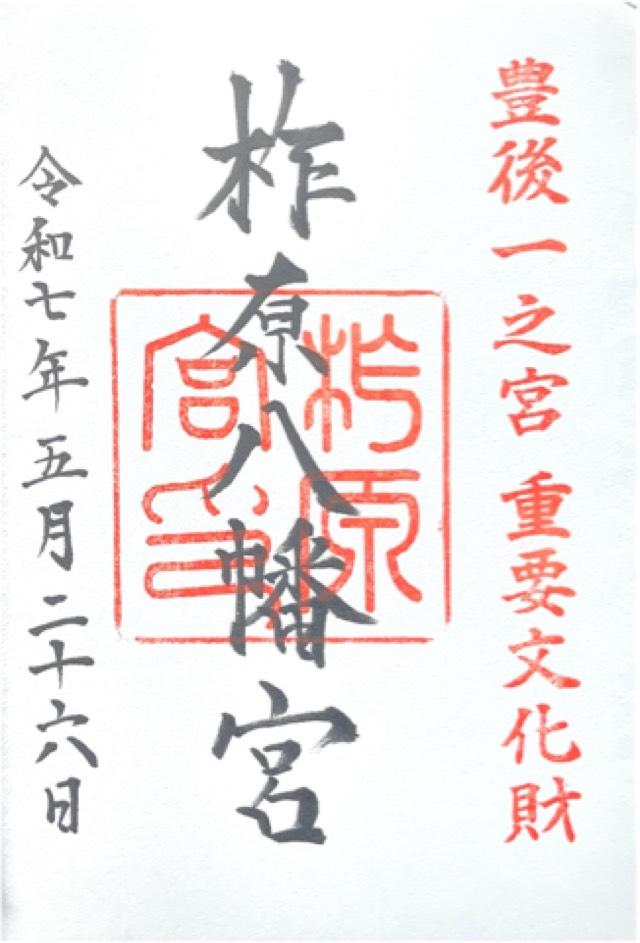 豊後一之宮 重要文化財
柞原八幡宮
柞原
宮印
令和七年五月二十六日